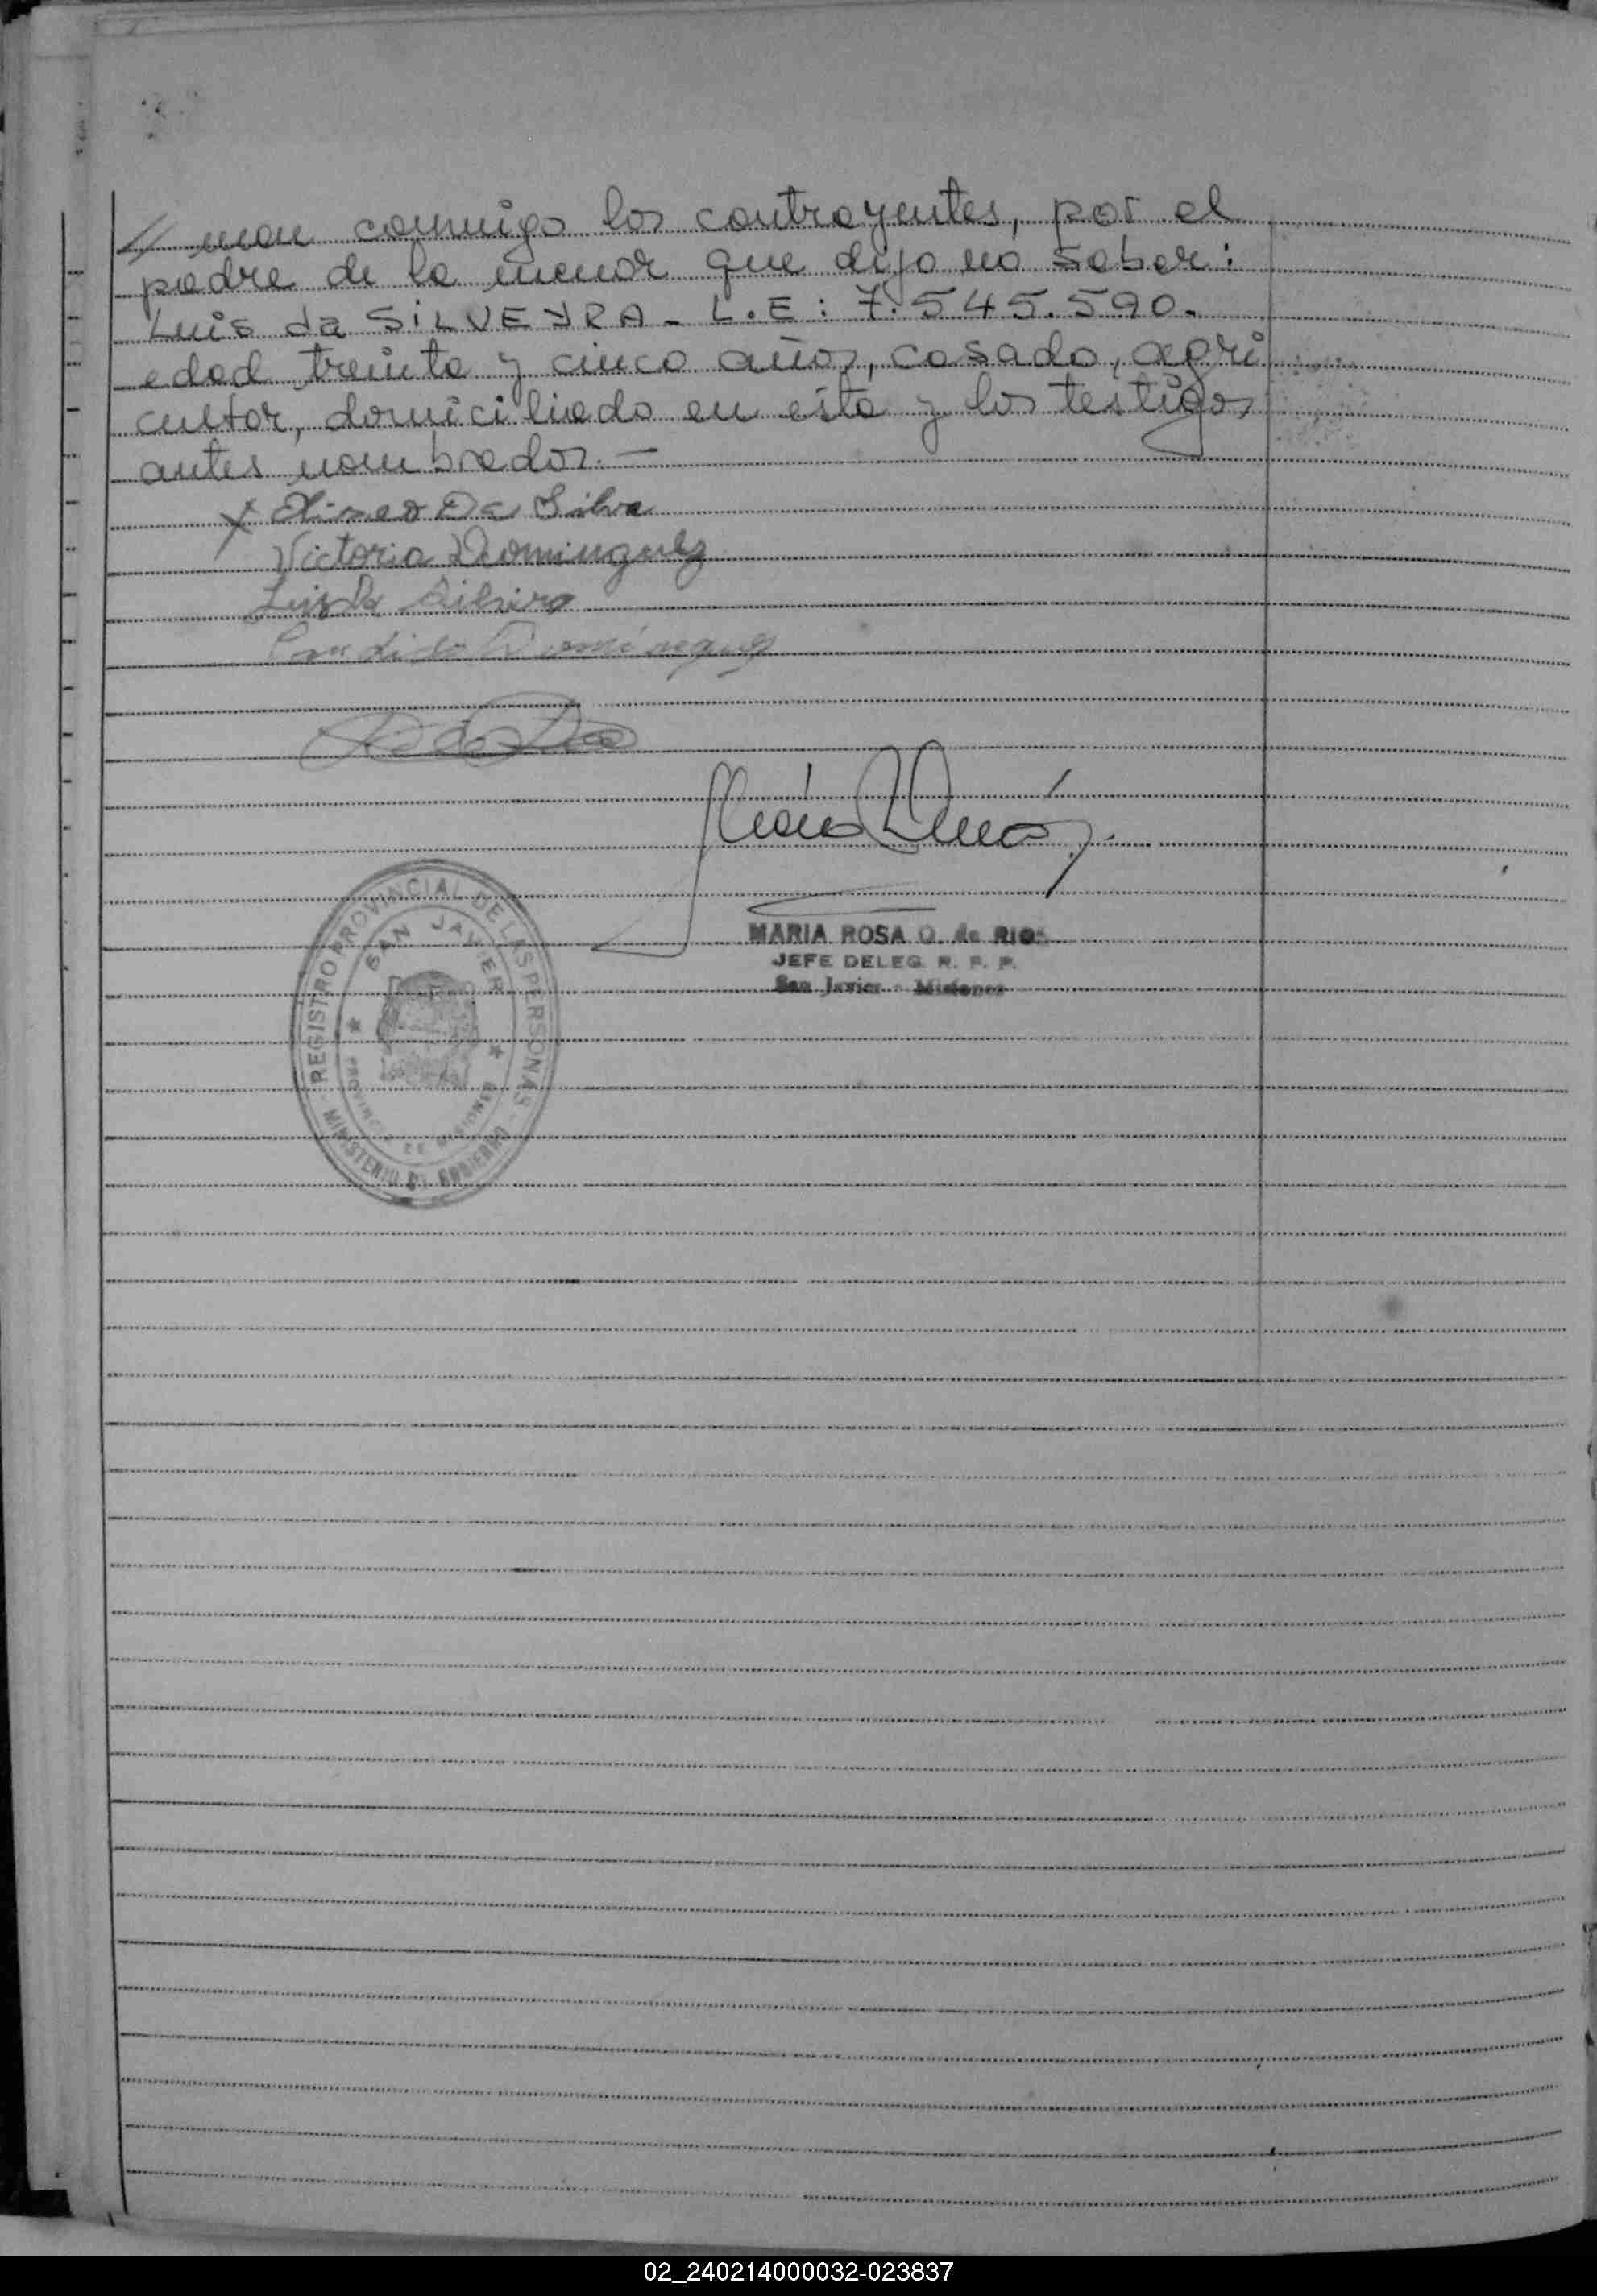 // man conmigo los contrayentes, por el
padre de la menor que dijo no saber:
Luis da SILVEYRA - L.E: 7.545.590.
edad treinta y cinco años, casado, agri
cultor, domiciliado en esta y los testigos
antes nombrados. —
x Da Silva
Victoria Dominguez
Luis Da Silveira
Candido Dominguez
MARIA ROSA O. de RIOS
JEFE DELEG. R. P. P.
San Javier - Misiones
REGISTRO PROVINCIAL DE LAS PERSONAS
SAN JAVIER
PROVINCIA DE MISIONES
MINISTERIO DE GOBIERNO
02_240214000032-023837